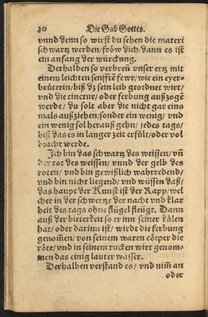 20 Die Gab Gottes.
vnnd wenn so wirst du sehen die materi
schwartz werden/ fröw dich/ dann es ist
ein anfang der würckung.
Derhalben so verbren vnser ertz mit
einem leichten senfften fewr/ wie ein eyer-
brütetein/ biß jr sein leib geordnet wirt/
vnd die tinctur/ oder ferbung außzogē
werde/ du solt aber die nicht gar eins
mals außziehen/ sonder ein wenig/ vnd
ein wenig sol herauß gehn/ jedes tags/
biß das es in langer zeit erfült/ oder vol
bracht werde.
Ich bin das schwartz des weissen/ vñ
der rot des weissen/ vnnd der gelb des
roten/ vnd bin gewißlich wahrredend/
vnd bin nicht liegend/ vnd wüssen/ daß/
das haupt der Kunst ist der Rapp/ wel
cher in der schwertze der nacht vnd klar
heit des tags ohne flügel fleügt. Dann
auß der bitterkeit so er inn seiner kälen
hat/ oder darinn ist/ wirdt die ferbung
genommen/ von seinem waren cörper der
röte/ vnd in seinem rucken wirt genom-
men das einig lauter wasser.
Derhalben verstand es/ vnd nim̄ an
oder